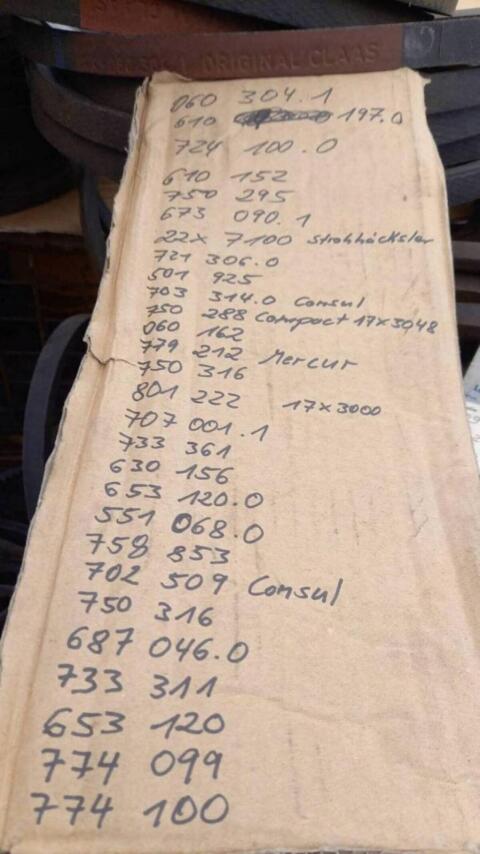 ORIGINAL CLAAS
060 304.1
610 197.0
724 100.0
610 152
750 295
673 090.1
22x 7100 Strohhäcksler
721 306.0
501 925
703 314.0 Consul
750 288 Compact 17x3048
060 162
779 212 Mercur
750 316
801 222 17x3000
707 001.1
733 361
630 156
653 120.0
551 068.0
758 853
702 509 Consul
750 316
687 046.0
733 311
653 120
774 099
774 100